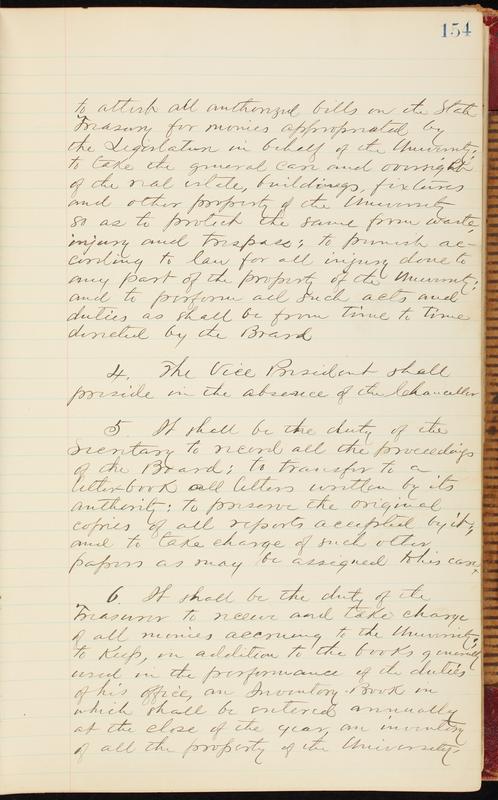 154
to attest all authorized bills on the State
Treasury for monies appropriated by
the Legislature in behalf of the University;
to take the general care and oversight
of the real estate, buildings, fixtures
and other property of the University
so as to protect the same from waste,
injury and trespass; to punish ac-
cording to law for all injury done to
any part of the property of the University;
and to perform all such acts and
duties as shall be from time to time
directed by the Board
4. The Vice President shall
preside in the absence of the Chancellor
5. It shall be the duty of the
Secretary to record all the proceedings
of the Board; to transfer to a
letter-book all letters written by its
authority; to preserve the original
copies of all reports accepted by it;
and to take charge of such other
papers as may be assigned to his care.
6. It shall be the duty of the
Treasurer to receive and take charge
of all monies accruing to the University;
to keep, in addition to the books generally
used in the performance of the duties
of his office, an Inventory-Book in
which shall be entered annually
at the close of the year, an inventory
of all the property of the University